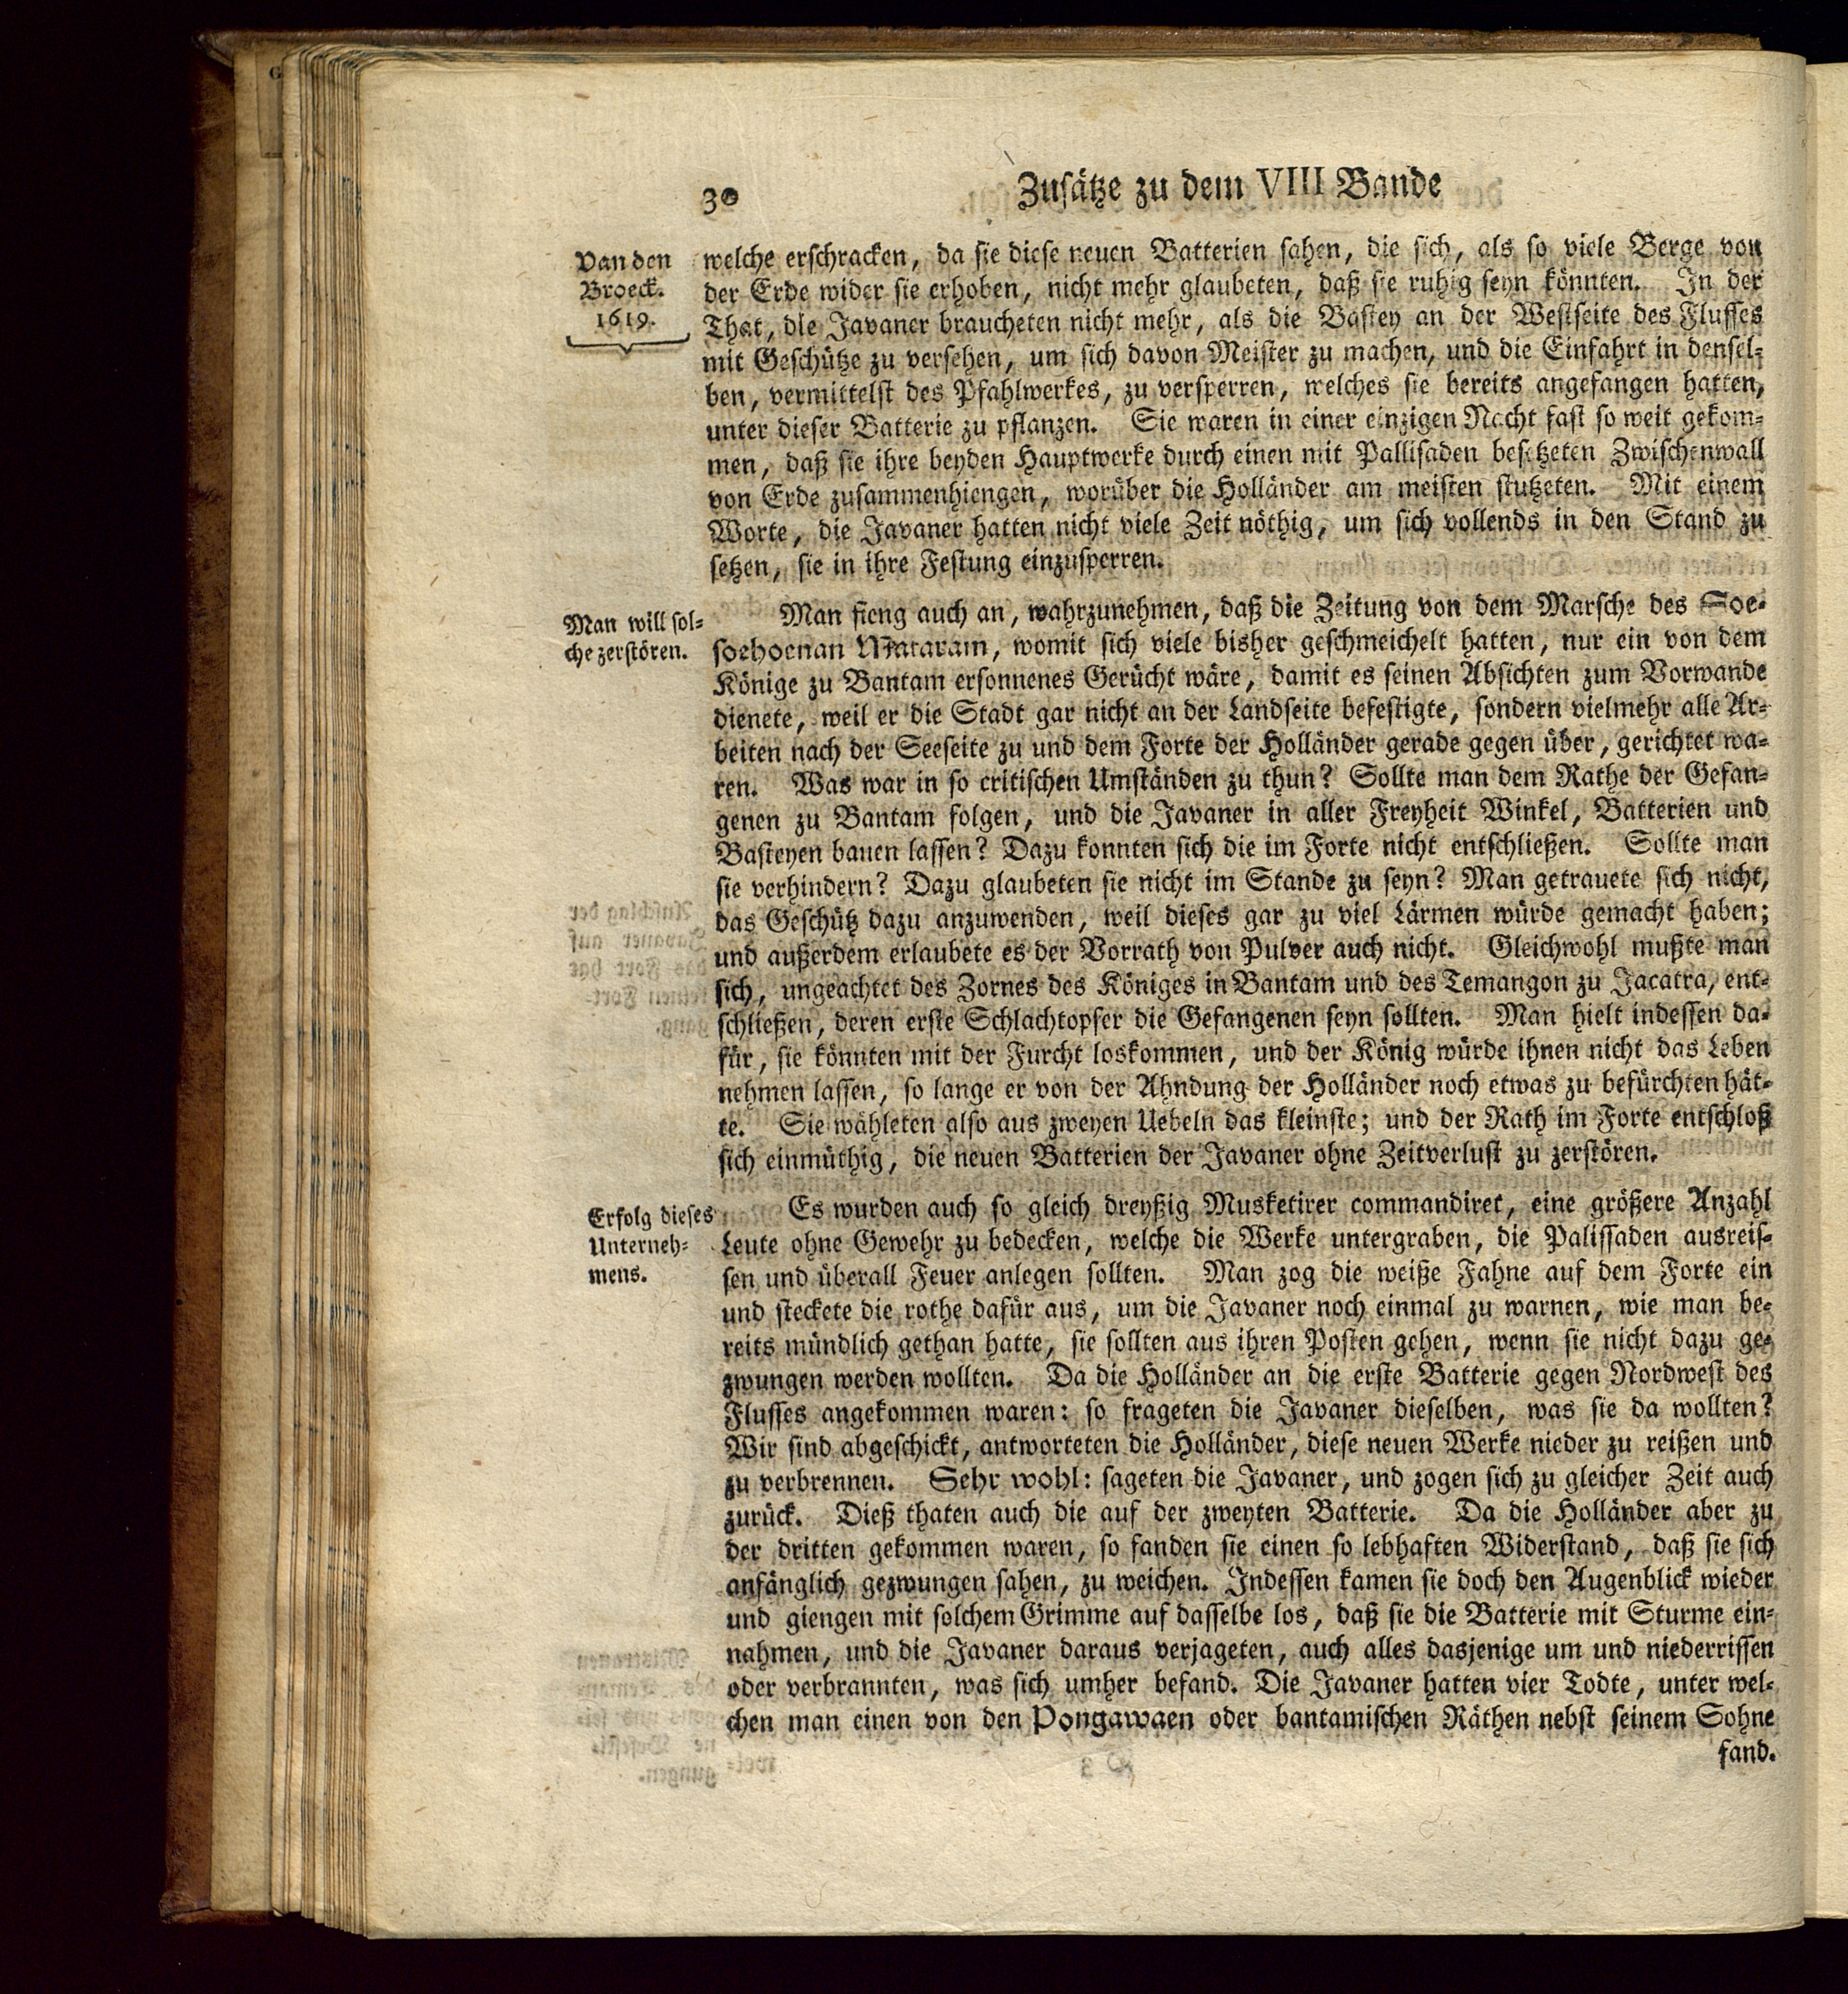 30
Zusätze zu dem VIII Bande
Van den
Broeck.
1619.
welche erschracken, da sie diese neuen Batterien sahen, die sich, als so viele Berge von
der Erde wider sie erhoben, nicht mehr glaubeten, daß sie ruhig seyn könnten. In der
That, die Javaner braucheten nicht mehr, als die Bastey an der Westseite des Flusses
mit Geschütze zu versehen, um sich davon Meister zu machen, und die Einfahrt in densel-
ben, vermittelst des Pfahlwerkes, zu versperren, welches sie bereits angefangen hatten,
unter dieser Batterie zu pflanzen. Sie waren in einer einzigen Nacht fast so weit gekom-
men, daß sie ihre beyden Hauptwerke durch einen mit Pallisaden besetzeten Zwischenwall
von Erde zusammenhiengen, worüber die Holländer am meisten stutzeten. Mit einem
Worte, die Javaner hatten nicht viele Zeit nöthig, um sich vollends in den Stand zu
setzen, sie in ihre Festung einzusperren.
Man will sol-
che zerstören.
Man fieng auch an, wahrzunehmen, daß die Zeitung von dem Marsche des Soe-
soehoenan Mataram, womit sich viele bisher geschmeichelt hatten, nur ein von dem
Könige zu Bantam ersonnenes Gerücht wäre, damit es seinen Absichten zum Vorwande
dienete, weil er die Stadt gar nicht an der Landseite befestigte, sondern vielmehr alle Ar-
beiten nach der Seeseite zu und dem Forte der Holländer gerade gegen über, gerichtet wa-
ren. Was war in so critischen Umständen zu thun? Sollte man dem Rathe der Gefan-
genen zu Bantam folgen, und die Javaner in aller Freyheit Winkel, Batterien und
Basteyen bauen lassen? Dazu konnten sich die im Forte nicht entschließen. Sollte man
sie verhindern? Dazu glaubeten sie nicht im Stande zu seyn? Man getrauete sich nicht,
das Geschütz dazu anzuwenden, weil dieses gar zu viel Lärmen würde gemacht haben;
und außerdem erlaubete es der Vorrath von Pulver auch nicht. Gleichwohl mußte man
sich, ungeachtet des Zornes des Königes in Bantam und des Temangon zu Jacatra, ent-
schließen, deren erste Schlachtopfer die Gefangenen seyn sollten. Man hielt indessen da-
für, sie könnten mit der Furcht loskommen, und der König würde ihnen nicht das Leben
nehmen lassen, so lange er von der Ahndung der Holländer noch etwas zu befürchten hät-
te. Sie wähleten also aus zweyen Uebeln das kleinste; und der Rath im Forte entschloß
sich einmüthig, die neuen Batterien der Javaner ohne Zeitverlust zu zerstören.
Erfolg dieses
Unterneh-
mens.
Es wurden auch so gleich dreyßig Musketirer commandiret, eine größere Anzahl
Leute ohne Gewehr zu bedecken, welche die Werke untergraben, die Palissaden ausreis-
sen und überall Feuer anlegen sollten. Man zog die weiße Fahne auf dem Forte ein
und steckete die rothe dafür aus, um die Javaner noch einmal zu warnen, wie man be-
reits mündlich gethan hatte, sie sollten aus ihren Posten gehen, wenn sie nicht dazu ge-
zwungen werden wollten. Da die Holländer an die erste Batterie gegen Nordwest des
Flusses angekommen waren: so frageten die Javaner dieselben, was sie da wollten?
Wir sind abgeschickt, antworteten die Holländer, diese neuen Werke nieder zu reißen und
zu verbrennen. Sehr wohl: sageten die Javaner, und zogen sich zu gleicher Zeit auch
zurück. Dieß thaten auch die auf der zweyten Batterie. Da die Holländer aber zu
der dritten gekommen waren, so fanden sie einen so lebhaften Widerstand, daß sie sich
anfänglich gezwungen sahen, zu weichen. Indessen kamen sie doch den Augenblick wieder
und giengen mit solchem Grimme auf dasselbe los, daß sie die Batterie mit Sturme ein-
nahmen, und die Javaner daraus verjageten, auch alles dasjenige um und niederrissen
oder verbrannten, was sich umher befand. Die Javaner hatten vier Todte, unter wel-
chen man einen von den Pongawaen oder bantamischen Räthen nebst seinem Sohne
fand.